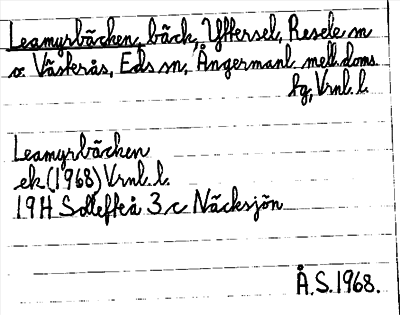 Leamyrbäcken, bäck, Yttersel, Resele sn
o. Västerås, Eds sn, Ångermanl. mell. doms.
fg, Vrnl. l.
Leamyrbäcken
ek (1968) Vrnl. l.
19H Sollefteå 3c Näcksjön
Å.S. 1968.